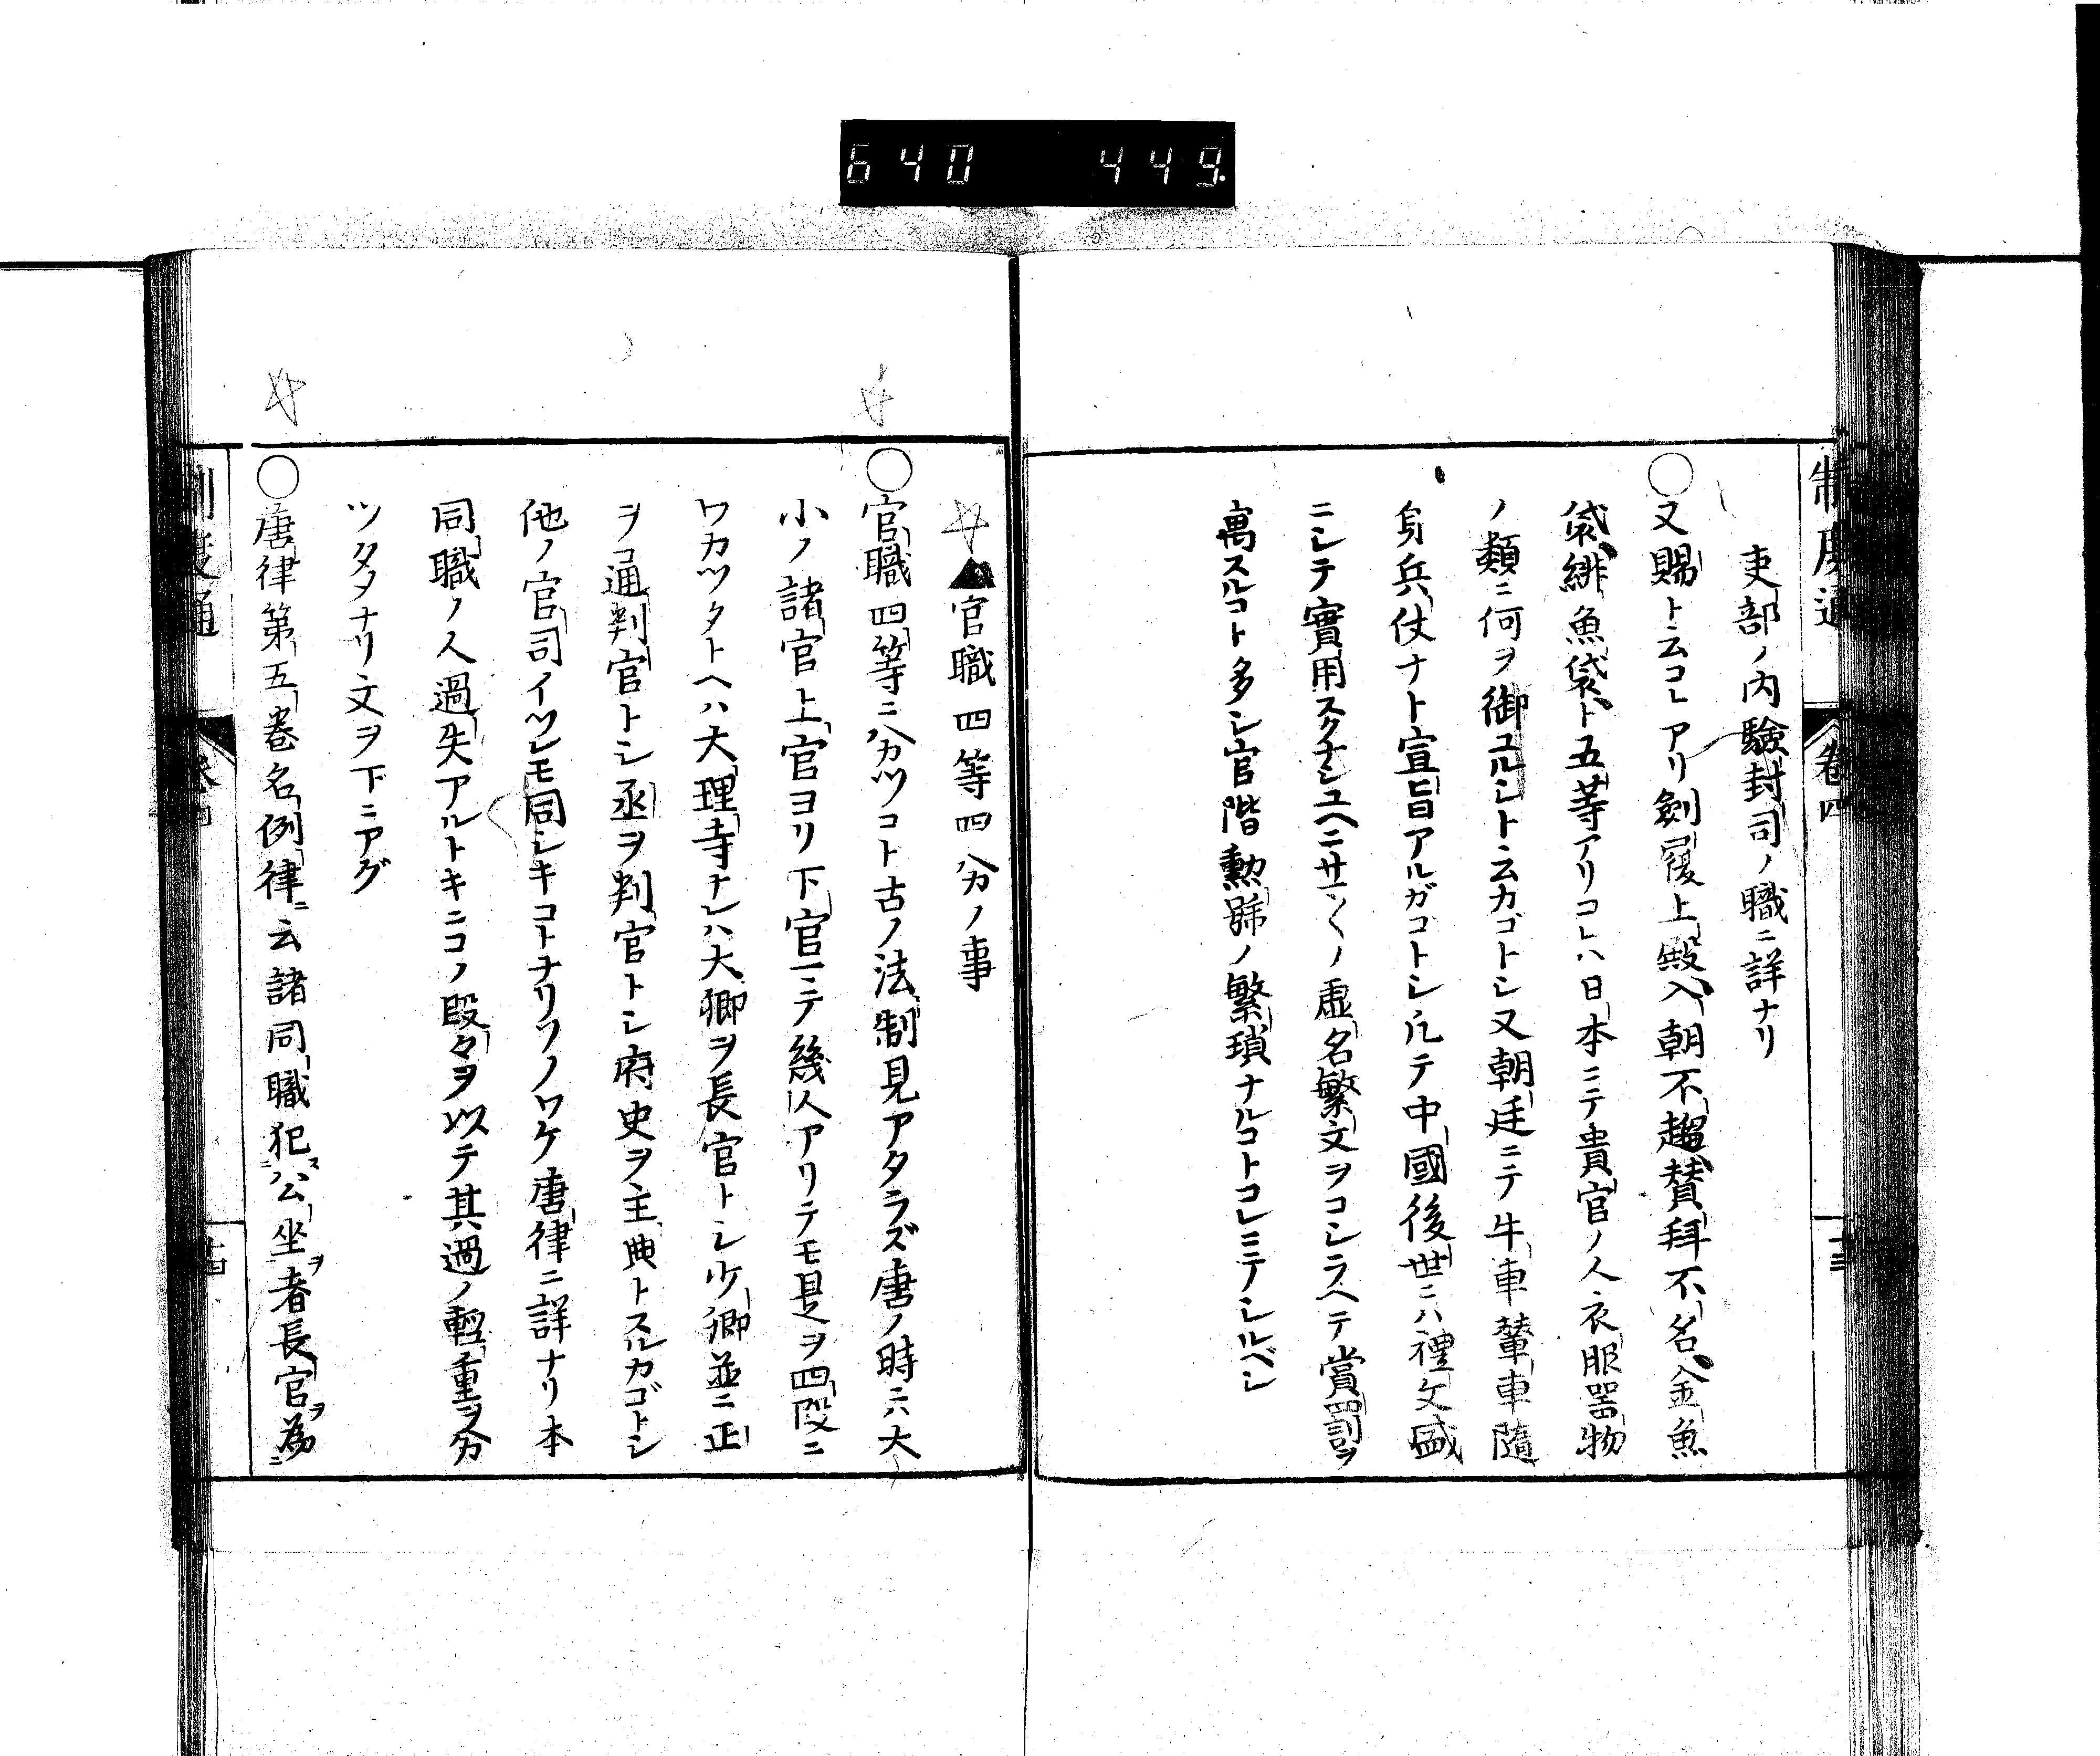 640 449.
制度通 卷四 十三
吏部ノ内驗封司ノ職ニ詳ナリ
○又賜ト云コレアリ劍履上殿入朝不趨賛拜不名金魚
袋緋魚袋ト五等アリコレハ日本ニテ貴官ノ人衣服器物
ノ類ニ何ヲ御ユルシト云カゴトシ又朝廷ニテ牛車輦車隨
身兵仗ナト宣旨アルガコトシ凡テ中國後世ニハ禮文盛
ニシテ實用スクナシユヘニサマ〱ノ虚名繁文ヲコシラヘテ賞罰ヲ
寓スルコト多シ官階勲號ノ繁瑣ナルコトコレニテシルベシ
▲官職四等四分ノ事
○官職四等ニ分カツコト古ノ法制見アタラズ唐ノ時ニハ大
小ノ諸官上官ヨリ下官ニテ幾人アリテモ是ヲ四段ニ
ワカツタトヘハ大理寺ナレハ大卿ヲ長官トシ少卿並ニ正
ヲ通判官トシ丞ヲ判官トシ府史ヲ主典トスルカゴトシ
他ノ官司イツレモ同シキコトナリソノワケ唐律ニ詳ナリ本
同職ノ人過失アルトキニコノ段々ヲ以テ其過ノ輕重ヲ分
ツタメナリ文ヲ下ニアグ
○唐律第五卷名例律ニ云諸同職犯スニ公坐ヲ者長官ヲ為ニ
制度通 卷四 十四